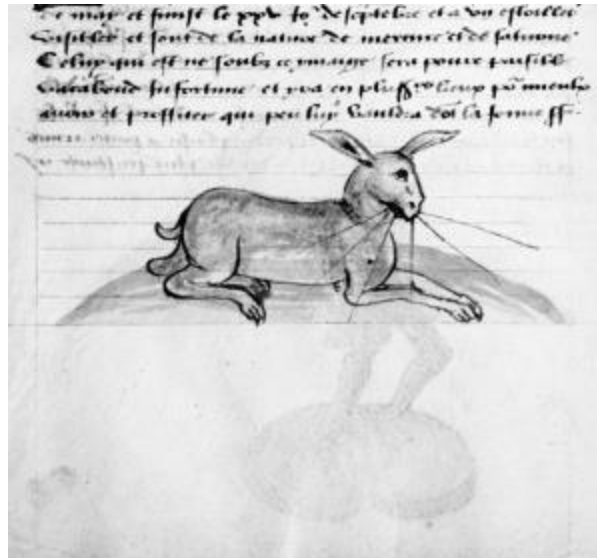 de may et finist le xxv jo de septebre et a vii estoilles
visibles et sont de la nature de mercure et de saturne
Celuy qui est ne soubz ce ymaige sera povre paisible
vacabond infortune et yra en plusrs lieux po mieulx
avoir et proffiter qui peu luy vauldra Et la forme